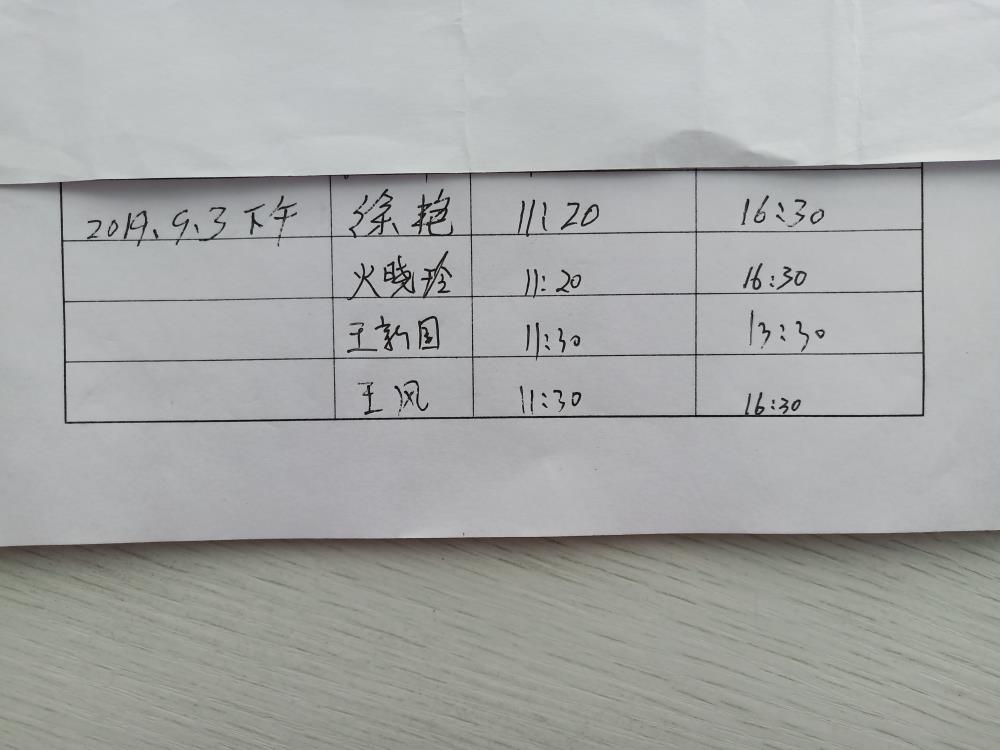 2019.9.3下午 徐艳 11:20 16:30
火晓玲 11:20 16:30
王新国 11:30 13:30
王风 11:30 16:30